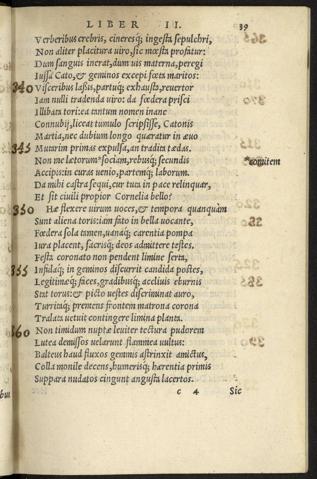 LIBER II. 39
Verberibus crebris, cineresq; ingesta sepulchri,
Non aliter placitura uiro, sic mœsta profatur:
Dum sanguis inerat, dum uis materna, peregi
Iussa Cato, & geminos excepi fœta maritos:
340 Visceribus lassis, partuq; exhausta, reuertor
Iam nulli tradenda uiro: da fœdera prisci
Illibata tori: da tantum nomen inane
Connubij, liceat tumulo scripsisse, Catonis
Martia, nec dubium longo quæratur in æuo
345 Mutarim primas expulsa, an tradita tædas.
Non me lætorum sociam, rebusq; secundis *comitem
Accipis: in curas uenio, partemq; laborum.
Da mihi castra sequi, cur tuta in pace relinquar,
Et sit ciuili propior Cornelia bello?
350 Hæ flexere uirum uoces, & tempora quanquam
Sunt aliena toris, iam fato in bella uocante,
Fœdera sola tamen, uanaq; carentia pompa
Iura placent, sacrisq; deos admittere testes.
Festa coronato non pendent limine serta,
355 Infulaq; in geminos discurrit candida postes,
Legitimæq; faces, gradibusq; accliuis eburnis
Stat torus: & picto uestes discriminat auro,
Turritaq; premens frontem matrona corona
Tralata uetuit contingere limina planta.
360 Non timidum nuptæ leuiter tectura pudorem
Lutea demissos uelarunt flammea uultus:
Balteus haud fluxos gemmis astrinxit amictus,
Colla monile decens, humerisq; hærentia primis
Suppara nudatos cingunt angusta lacertos.
c 4 Sic